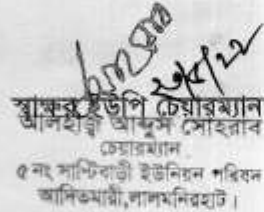 স্বাক্ষর ইউপি চেয়ারম্যান
আলহাজ্ব আব্দুস সোহরাব
চেয়ারম্যান
৫নং সাপ্টিবাড়ী ইউনিয়ন পরিষদ
আদিতমারী,লালমনিরহাট।